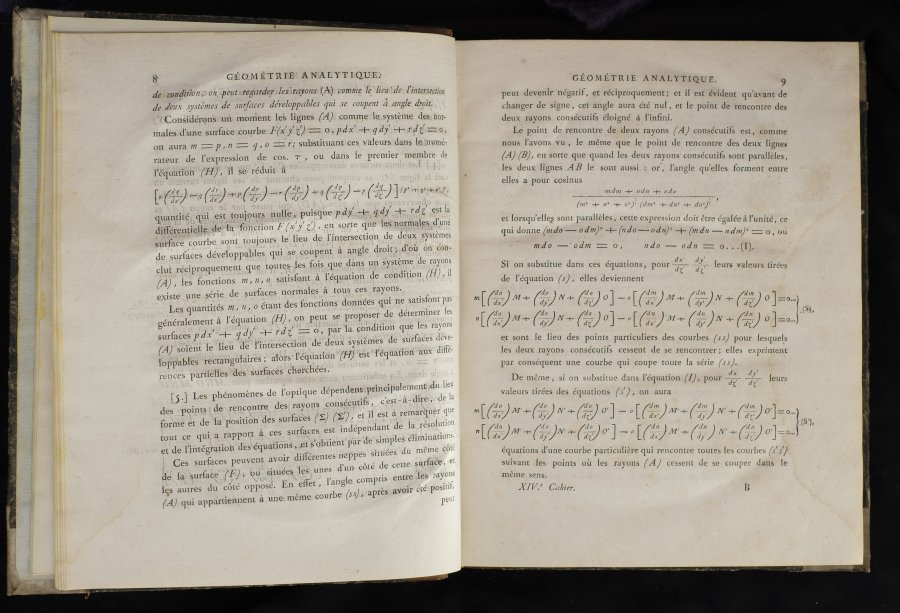 8 GÉOMÉTRIE ANALYTIQUE.
de condition, on peut regarder les rayons (A) comme le lieu de l'intersection
de deux systèmes de surfaces développables qui se coupent à angle droit.
Considérons un moment les lignes (A) comme le système des nor-
males d'une surface courbe F(x'y'z') = 0, pdx' + qdy' + rdz' = 0,
on aura m = p, n = q, o = r; substituant ces valeurs dans le numé-
rateur de l'expression de cos. τ, ou dans le premier membre de
l'équation (H), il se réduit à
quantité qui est toujours nulle, puisque pdx' + qdy' + rdz' est la
différentielle de la fonction F(x'y'z'), en sorte que les normales d'une
surface courbe sont toujours le lieu de l'intersection de deux systèmes
de surfaces développables qui se coupent à angle droit; d'où on con-
clut réciproquement que toutes les fois que dans un système de rayons
(A), les fonctions m, n, o satisfont à l'équation de condition (H), il
existe une série de surfaces normales à tous ces rayons.
Les quantités m, n, o étant des fonctions données qui ne satisfont pas
généralement à l'équation (H), on peut se proposer de déterminer les
surfaces pdx' + qdy' + rdz' = 0, par la condition que les rayons
(A) soient le lieu de l'intersection de deux systèmes de surfaces déve-
loppables rectangulaires; alors l'équation (H) est l'équation aux diffé-
rences partielles des surfaces cherchées.
[5.] Les phénomènes de l'optique dépendent principalement du lieu
des points de rencontre des rayons consécutifs, c'est-à-dire, de la
forme et de la position des surfaces (Σ) (Σ'), et il est à remarquer que
tout ce qui a rapport à ces surfaces est indépendant de la résolution
et de l'intégration des équations, et s'obtient par de simples éliminations.
Ces surfaces peuvent avoir différentes nappes situées du même côté
de la surface (F), ou situées les unes d'un côté de cette surface, et
les autres du côté opposé. En effet, l'angle compris entre les rayons
(A) qui appartiennent à une même courbe (ss), après avoir été positif,
peut
GÉOMÉTRIE ANALYTIQUE. 9
peut devenir négatif, et réciproquement; et il est évident qu'avant de
changer de signe, cet angle aura été nul, et le point de rencontre des
deux rayons consécutifs éloigné à l'infini.
Le point de rencontre de deux rayons (A) consécutifs est, comme
nous l'avons vu, le même que le point de rencontre des deux lignes
(A) (B), en sorte que quand les deux rayons consécutifs sont parallèles,
les deux lignes AB le sont aussi : or, l'angle qu'elles forment entre
elles a pour cosinus
mdm + ndn + odo
(m² + n² + o²)½ (dm² + dn² + do²)½ ,
et lorsqu'elles sont parallèles, cette expression doit être égalée à l'unité, ce
qui donne (mdo — odm)² + (ndo — odn)² + (mdn — ndm)² = 0, ou
mdo — odm = 0, ndo — odn = 0...(I).
Si on substitue dans ces équations, pour dx'/dz', dy'/dz' leurs valeurs tirées
de l'équation (s), elles deviennent
m[(do/dx')M + (do/dy')N + (do/dz')O] — o[(dm/dx')M + (dm/dy')N + (dm/dz')O] = 0...
n[(do/dx')M + (do/dy')N + (do/dz')O] — o[(dn/dx')M + (dn/dy')N + (dn/dz')O] = 0... (S),
et sont le lieu des points particuliers des courbes (ss) pour lesquels
les deux rayons consécutifs cessent de se rencontrer; elles expriment
par conséquent une courbe qui coupe toute la série (ss).
De même, si on substitue dans l'équation (I), pour dx'/dz', dy'/dz' leurs
valeurs tirées des équations (s'), on aura
m[(do/dx')M' + (do/dy')N' + (do/dz')O'] — o[(dm/dx')M' + (dm/dy')N' + (dm/dz')O'] = 0...
n[(do/dx')M' + (do/dy')N' + (do/dz')O'] — o[(dn/dx')M' + (dn/dy')N' + (dn/dz')O'] = 0... (S'),
équations d'une courbe particulière qui rencontre toutes les courbes (s's')
suivant les points où les rayons (A) cessent de se couper dans le
même sens.
XIV.e Cahier. B